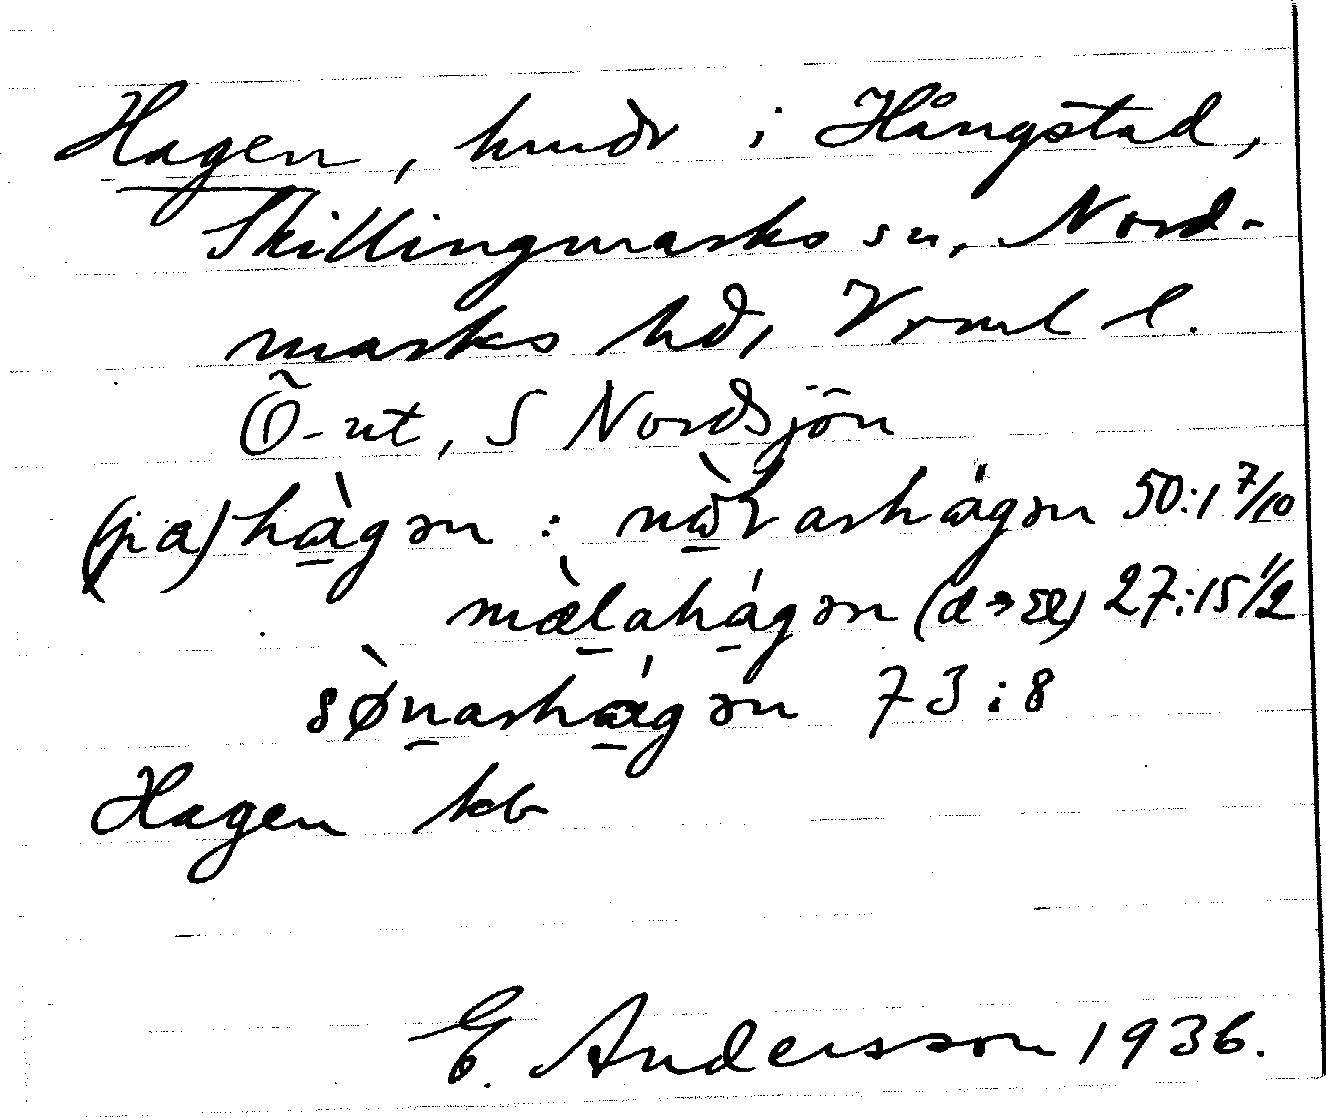 Hagen, hmdr i Hångstad,
Skillingmarks sn, Nord-
marks hd, Vrml l.
Ö-ut, S Nordsjön
(pa) hàgən : nòrashágən 50:1 7/10
mæ̀lahágən (æ→ɶ) 27:15 1/2
sø̀nashágən 73:8
Hagen kb
E. Andersson 1936.